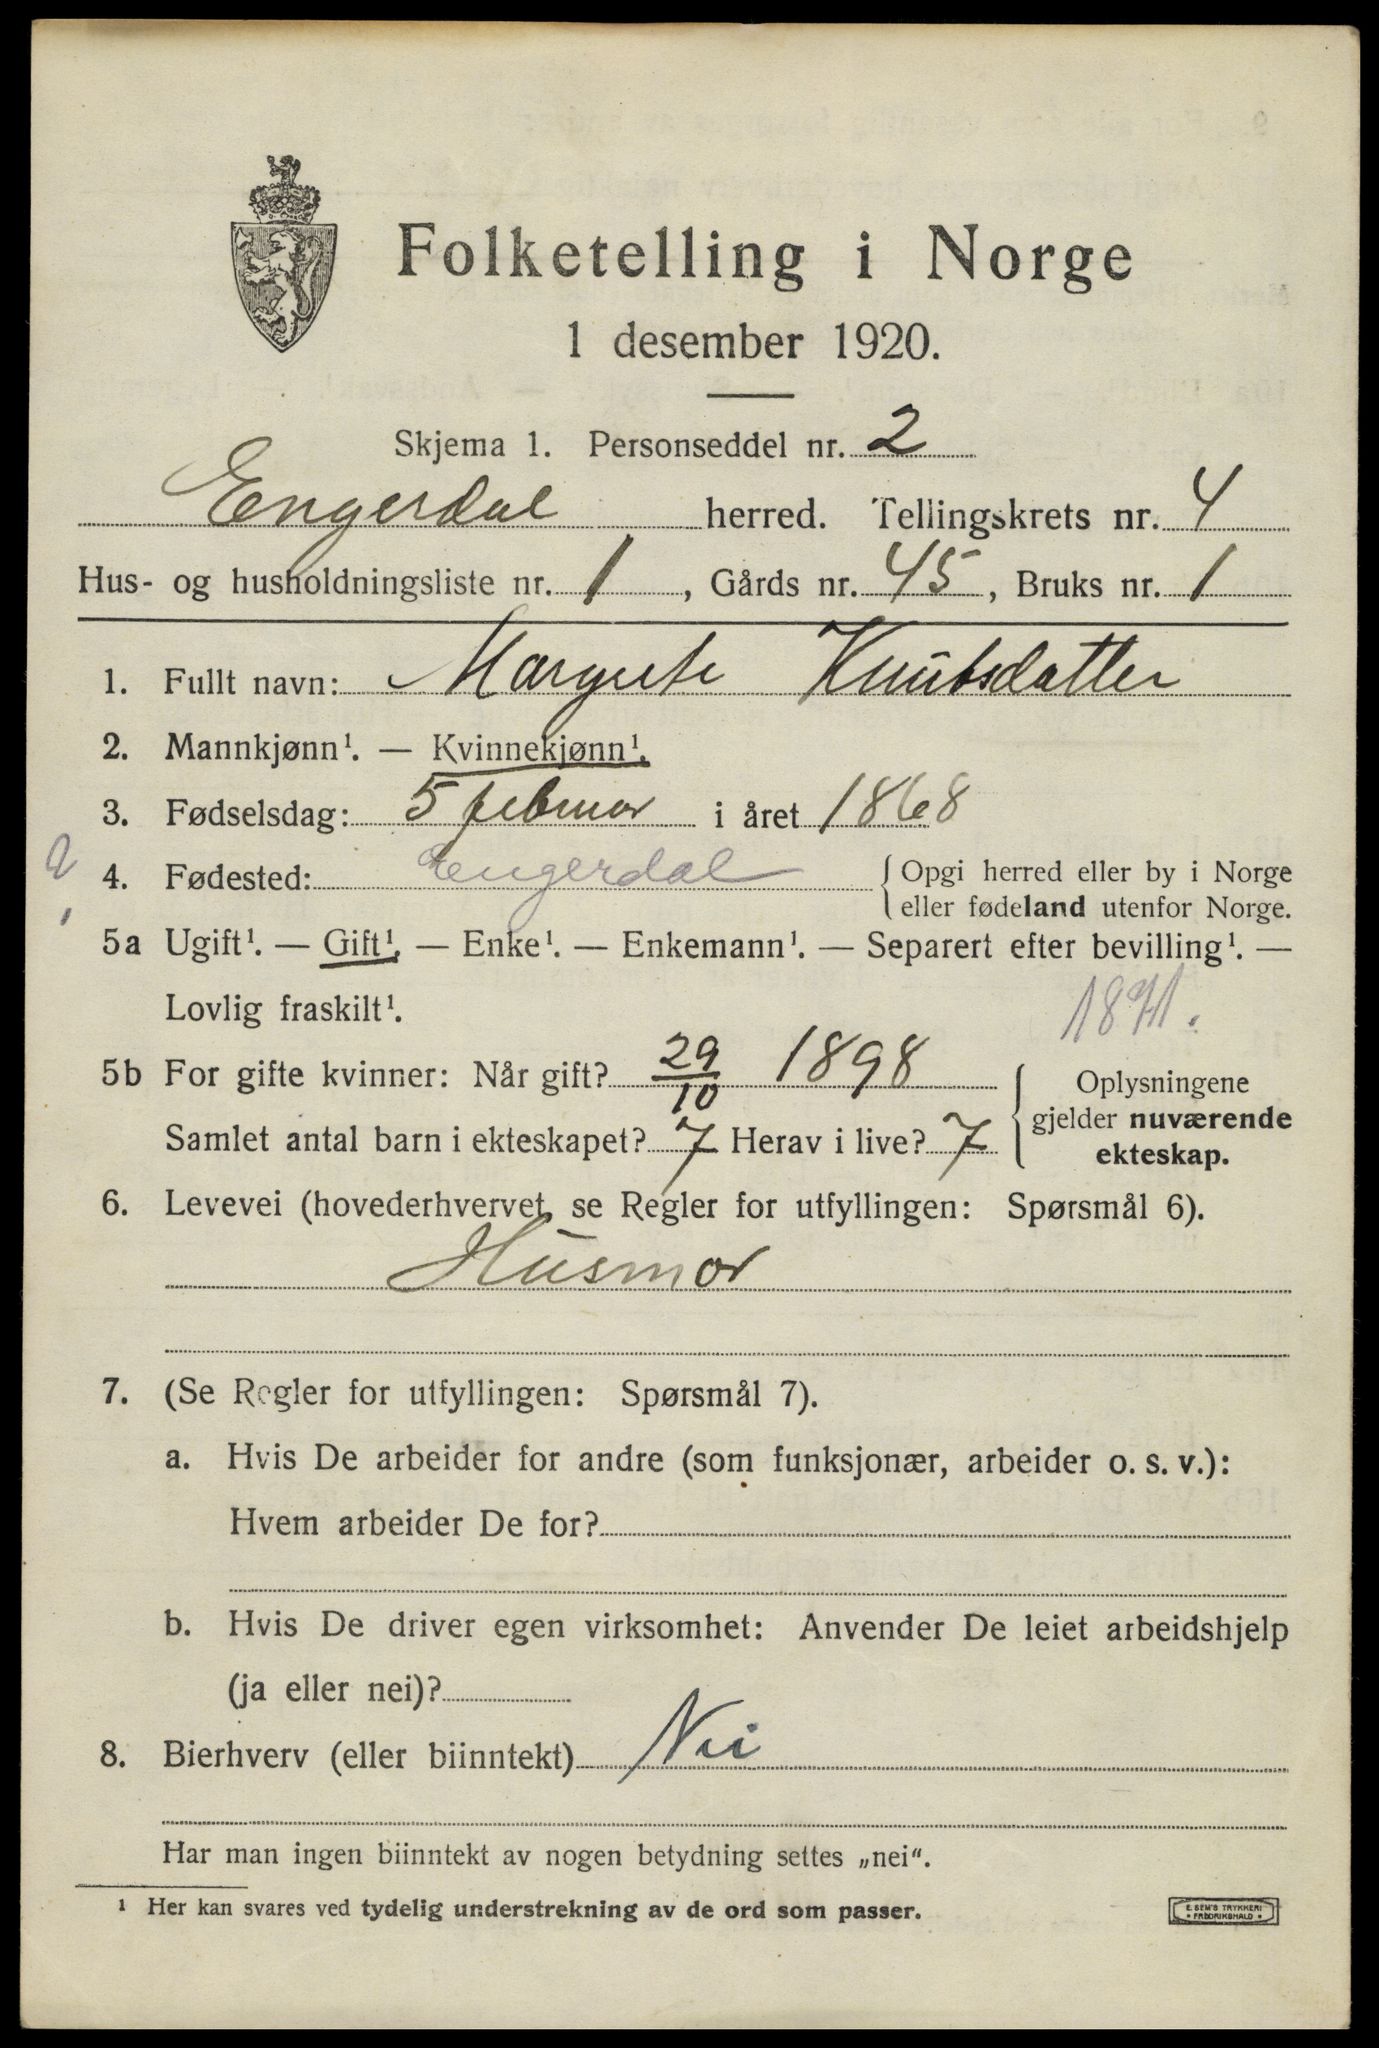 Folketelling i Norge
1 desember 1920.
Skjema 1. Personseddel nr. 2
Engerdal herred. Tellingskrets nr. 4
Hus- og husholdningsliste nr. 1, Gårds nr. 45, Bruks nr. 1
1. Fullt navn: Margrete Knutsdatter
2. Mannkjønn¹. — Kvinnekjønn¹.
3. Fødselsdag: 5 februar i året 1868
4. Fødested: Engerdal { Opgi herred eller by i Norge
eller fødeland utenfor Norge.
5a Ugift¹. — Gift¹. — Enke¹. — Enkemann¹. — Separert efter bevilling¹. —
Lovlig fraskilt¹.
1871.
5b For gifte kvinner: Når gift? 29/10 1898
Samlet antal barn i ekteskapet? 7 Herav i live? 7
{ Oplysningene
gjelder nuværende
ekteskap.
6. Levevei (hovederhvervet, se Regler for utfyllingen: Spørsmål 6).
Husmor
7. (Se Regler for utfyllingen: Spørsmål 7).
a. Hvis De arbeider for andre (som funksjonær, arbeider o. s. v.):
Hvem arbeider De for?
b. Hvis De driver egen virksomhet: Anvender De leiet arbeidshjelp
(ja eller nei)?
8. Bierhverv (eller biinntekt) Nei
Har man ingen biinntekt av nogen betydning settes „nei“.
¹ Her kan svares ved tydelig understrekning av de ord som passer.
E. SEM'S TRYKKERI
• FREDRIKSHALD •